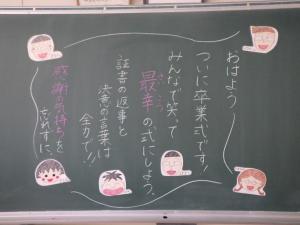 おはよう
ついに卒業式です!
みんなで笑って
最幸の式にしよう。
さいこう
証書の返事と
決意の言葉は
全力で!!
感謝の気持ちを
忘れずに、